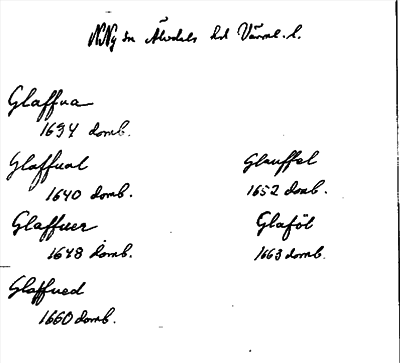 N. Ny sn Älvdals hd Värml. l.
Glaffua
1634 domb.
Glaffual
1640 domb.
Glaffuer
1648 domb.
Glaffued
1660 domb.
Glauffel
1652 domb.
Glaföl
1663 domb.